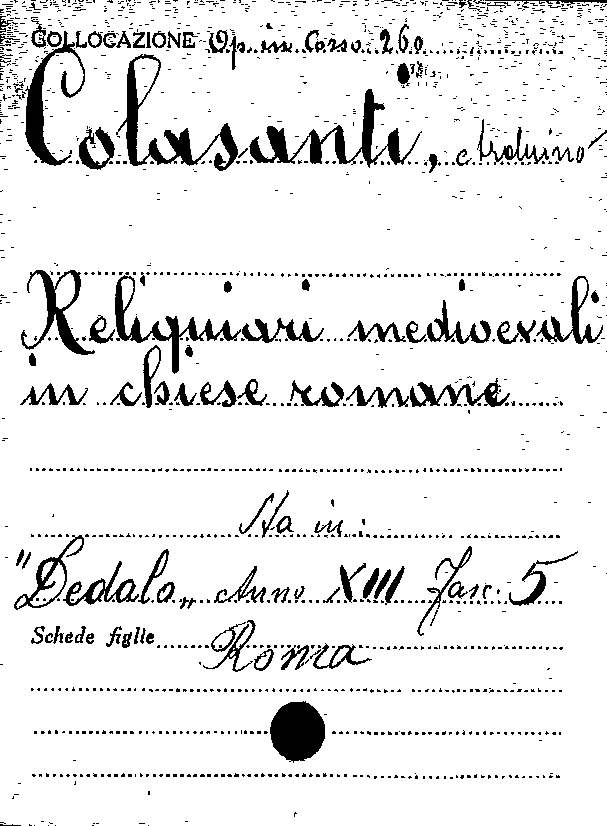 COLLOCAZIONE Op. in Corso 260
Colasanti, Arduino
Reliquiari medioevali
in chiese romane
Sta in:
"Dedalo„ Anno XIII Fasc. 5
Schede figlie Roma